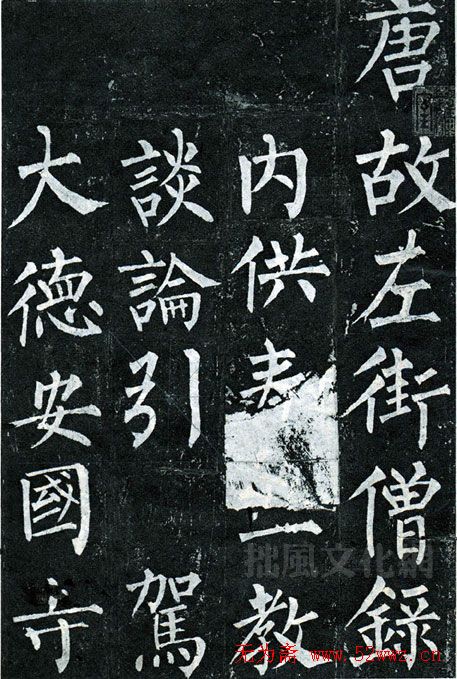 唐故左街僧錄
内供教
談論引 駕
大徳安國寺
拙風文化網
无为斋 www.52wwz.cn